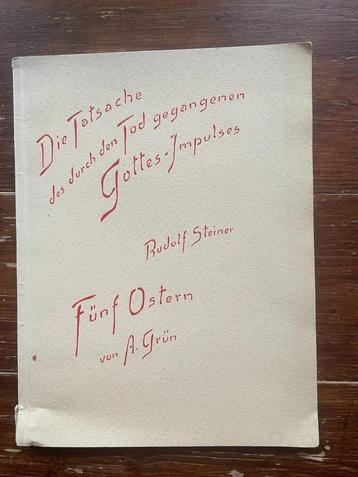 Die Tatsache
des durch den Tod gegangenen
Gottes-Impulses
Rudolf Steiner
Fünf Ostern
von A. Grün